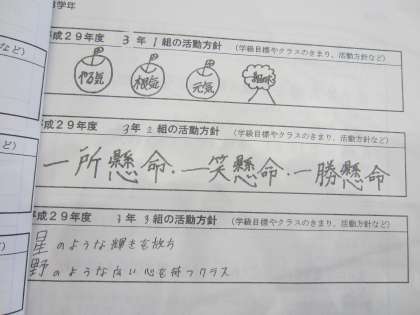 学年
平成29年度 3年1組の活動方針 (学級目標やクラスのきまり、活動方針など)
やる気 根気 元気
平成29年度 3年2組の活動方針 (学級目標やクラスのきまり、活動方針など)
一所懸命・一笑懸命・一勝懸命
平成29年度 3年3組の活動方針 (学級目標やクラスのきまり、活動方針など)
星のような輝きを放ち
野のような広い心を持つクラス
など)
ど)